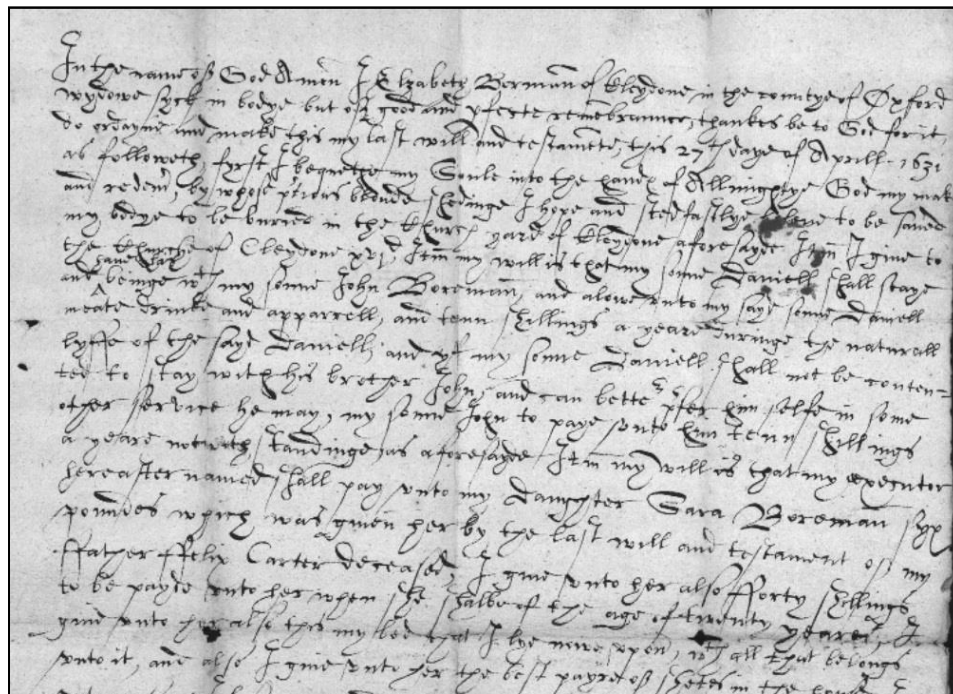 In the name of God Amen I Elzabeth Borman of Cleydone in the countye of Oxford
wydowe syck in bodye but of good and pfecte remembraunce, thankes be to God for it,
do ordayne and make this my last will and testamente, this 27th daye of Aprill 1631
as followeth, fyrst I bequethe my Soule into the handes of Allmightye God my make
and redemr, by whose ptious bloude shedinge I hope and stedfastlye to be saved
my bodye to be buried in the Church yard of Cleydone aforesayde Itm I give to
the Churche of Cleydone Itm my will is that my sonne Daniell shall staye
and beinge wth my sonne John Boreman, and alowe unto my sayd sonne Daniell
meate drinke and apparrell, and tenn shillings a yeare duringe the naturall
lyffe of the saye Daniell, and yf my sonne Daniell shall not be conten=
ted to stay with his brother John, and can better pfer him selfe in some
other service he may, my sonne John to paye unto him tenn shillings
a yeare notwithstandinge as aforesayde Itm my will is that my executor
hereafter named shall pay unto my daughter Sara Boreman syx
poundes which was given her by the last will and testament of my
ffather ffelix Carter deceased, I give unto her also fforty shillings
to be payde unto her when she shalbe of the age of twenty yeares, I
give unto her also this my bed that I lye nowe upon, wth all that belongs
unto it, and also I give unto her the best payre of shetes in the house